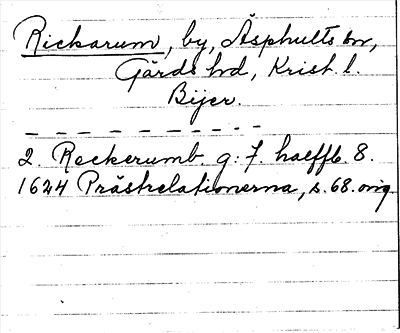 Rickarum, by, Äsphults sn,
Gärds hd, Krist. l.
Bijer.
2. Reckerumb g: 7. haeffb. 8.
1624 Prästrelationerna, s. 68. orig.